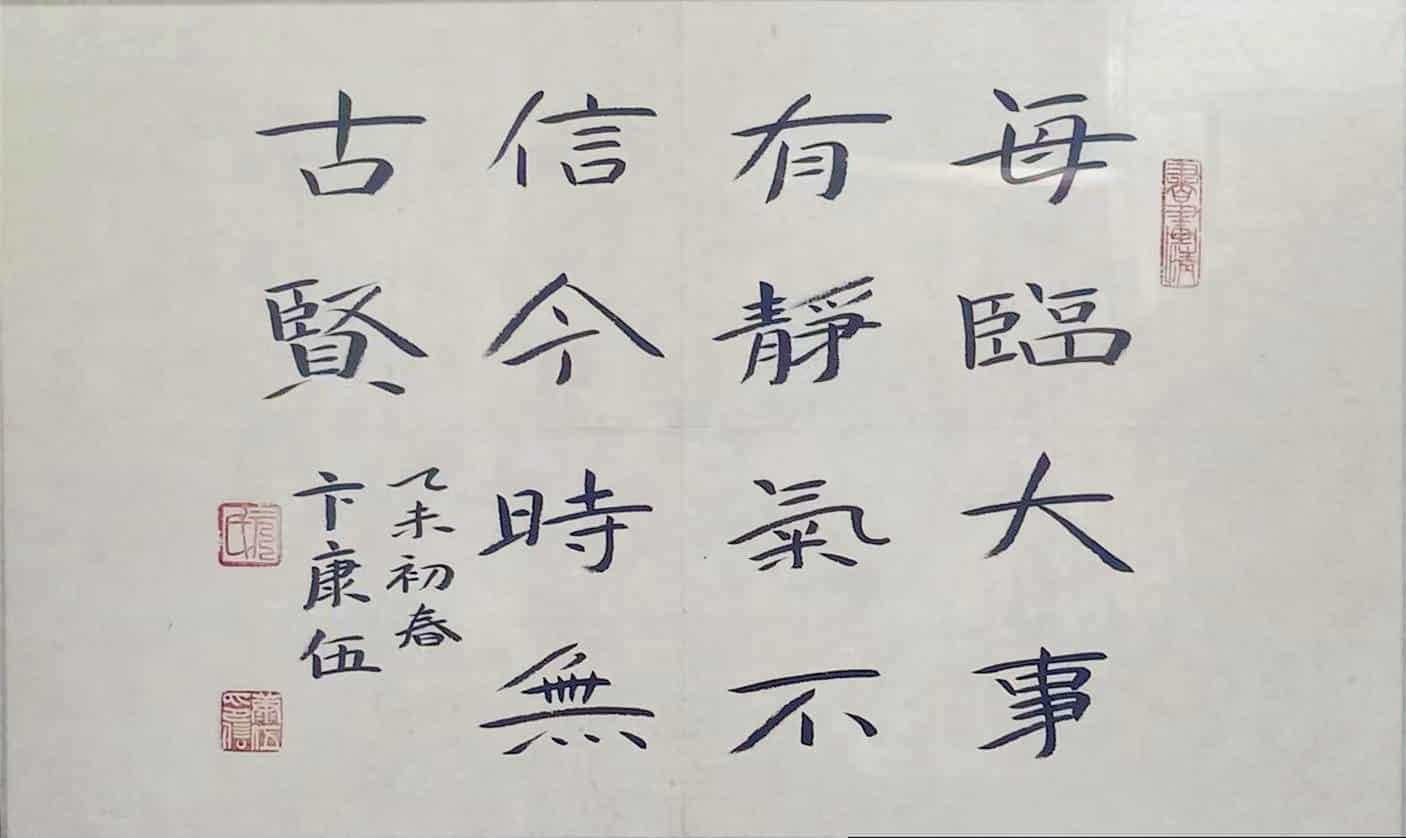 每臨大事
有靜氣不
信今時無
古賢
乙未初春
卞康伍